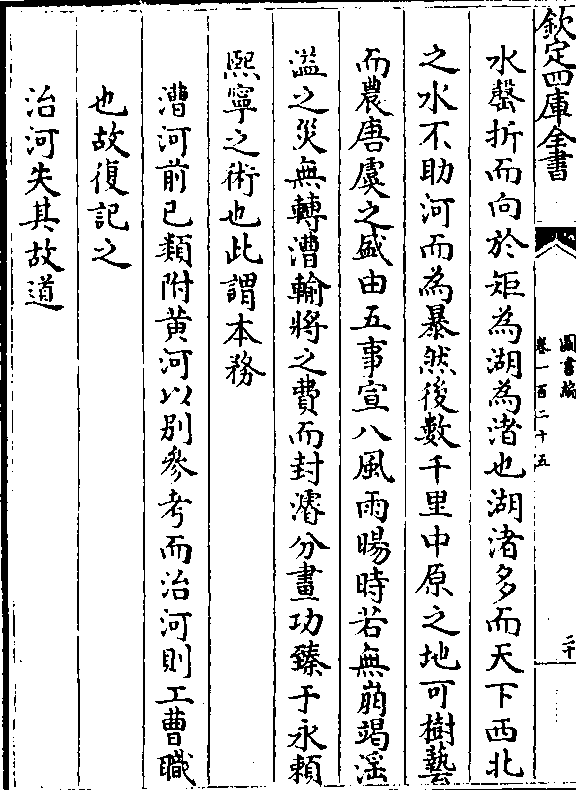 欽定四庫全書
圖書編
卷一百二十五
二十
水罄折而向於矩為湖為渚也湖渚多而天下西北
之水不助河而為暴然後數千里中原之地可樹藝
而農唐虞之盛由五事宣八風雨暘時若無崩竭滛
溢之災無轉漕輸將之費而封濬分畫功臻于永頼
熙寧之術也此謂本務
漕河前已類附黄河以别參考而治河則工曹職
也故復記之
治河失其故道